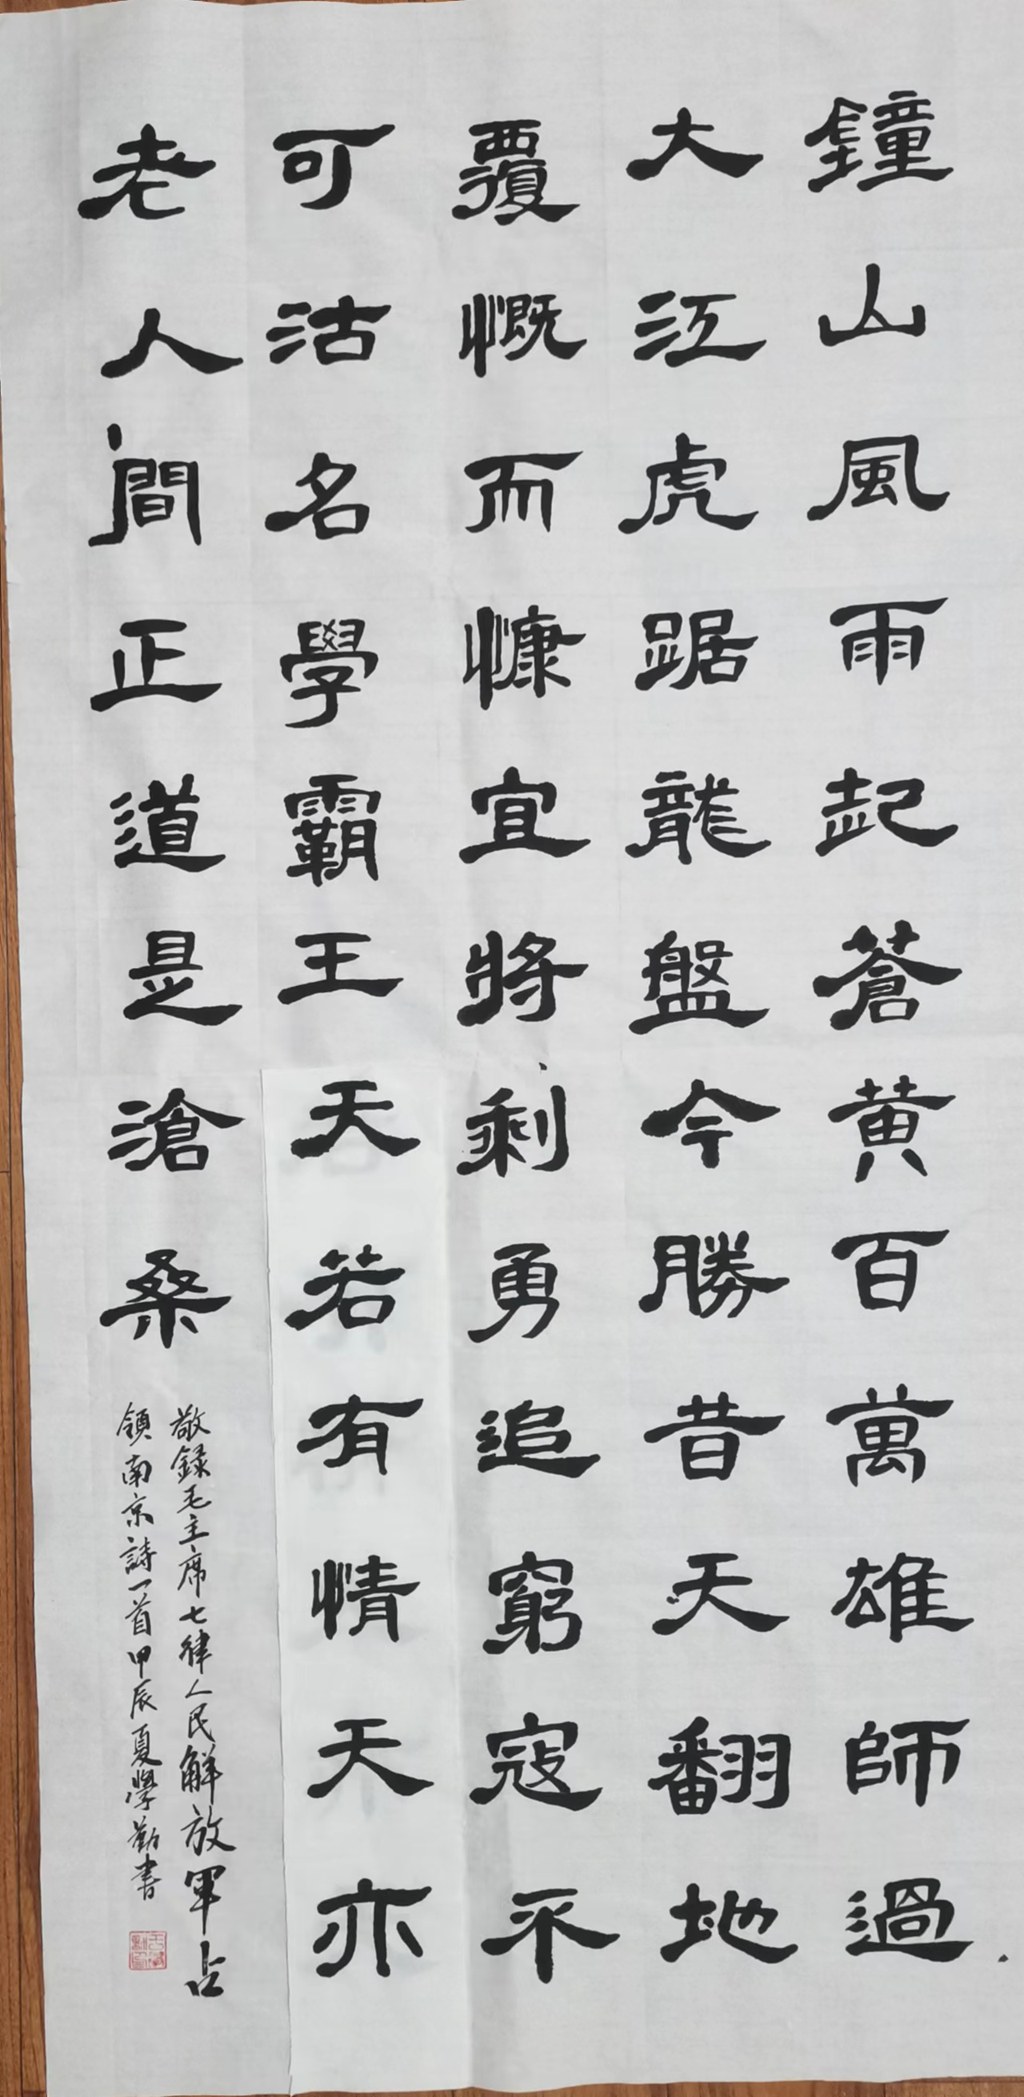 鐘山風雨起蒼黃百萬雄師過
大江虎踞龍盤今勝昔天翻地
覆慨而慷宜將剩勇追窮寇不
可沽名學霸王天若有情天亦
老人間正道是滄桑
敬録毛主席七律人民解放軍占
領南京詩一首甲辰夏學勤書